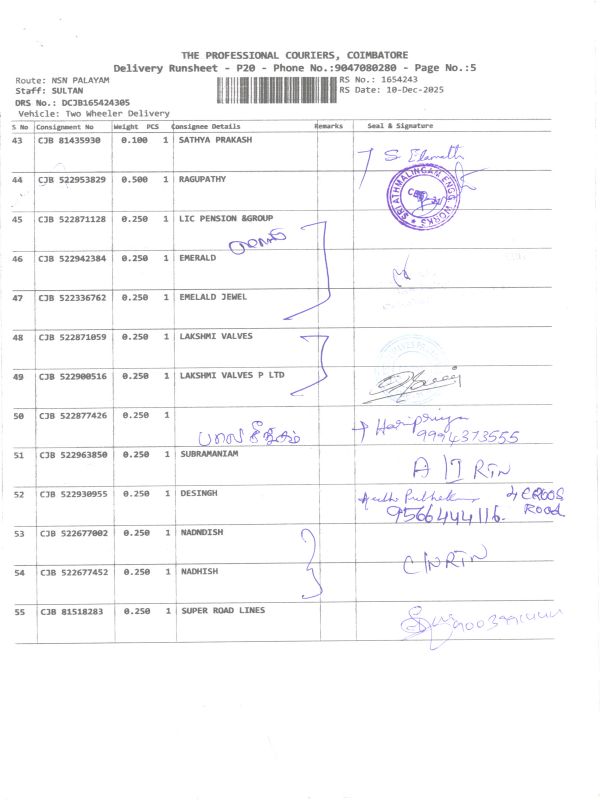 THE PROFESSIONAL COURIERS, COIMBATORE
Delivery Runsheet - P20 - Phone No.:9047080280 - Page No.:5
Route: NSN PALAYAM RS No.: 1654243
Staff: SULTAN RS Date: 10-Dec-2025
DRS No.: DCJB165424305
Vehicle: Two Wheeler Delivery
S No Consignment No Weight PCS Consignee Details Remarks Seal & Signature
43 CJB 81435930 0.100 1 SATHYA PRAKASH
44 CJB 522953829 0.500 1 RAGUPATHY
SRI ATHMALINGAM ENGG WORKS
45 CJB 522871128 0.250 1 LIC PENSION &GROUP
46 CJB 522942384 0.250 1 EMERALD
47 CJB 522336762 0.250 1 EMELALD JEWEL
48 CJB 522871059 0.250 1 LAKSHMI VALVES
49 CJB 522900516 0.250 1 LAKSHMI VALVES P LTD
50 CJB 522877426 0.250 1 Haripriya
9994373555
51 CJB 522963850 0.250 1 SUBRAMANIAM
52 CJB 522930955 0.250 1 DESINGH 4 CROOS
9566444116. ROAD
53 CJB 522677002 0.250 1 NADNDISH
54 CJB 522677452 0.250 1 NADHISH
55 CJB 81518283 0.250 1 SUPER ROAD LINES